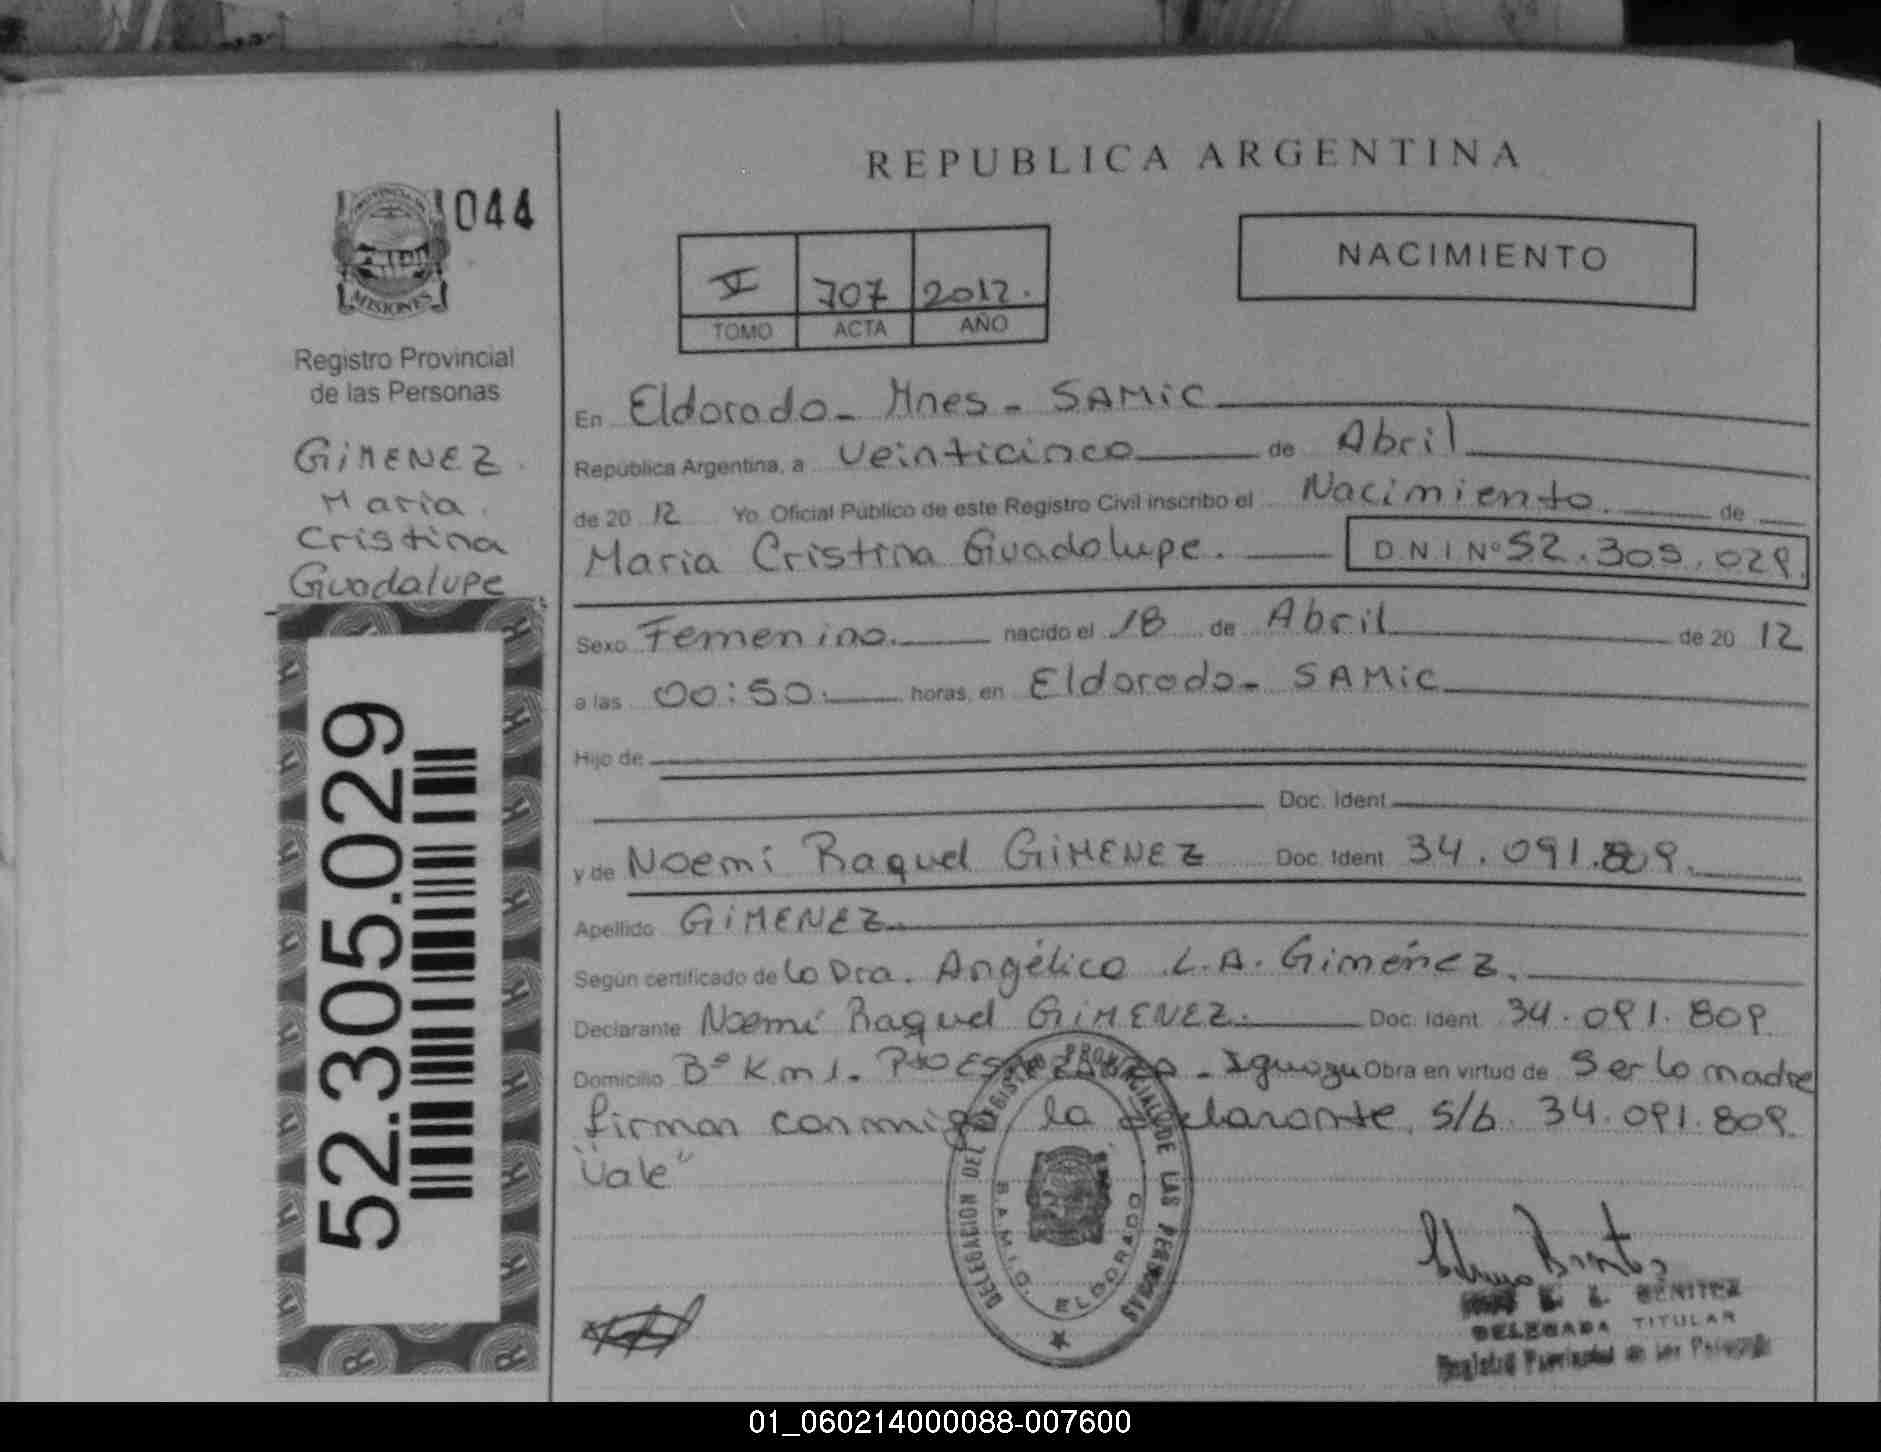 REPUBLICA ARGENTINA
MISIONES
044
NACIMIENTO
V 707 2012.
TOMO ACTA AÑO
Registro Provincial
de las Personas
GIMENEZ
Maria
Cristina
Guadalupe
52.305.029
En Eldorado - Mnes - SAMIC
República Argentina, a veinticinco de Abril
de 20 12 Yo, Oficial Público de este Registro Civil inscribo el Nacimiento de
Maria Cristina Guadalupe. D.N.I Nº 52.305.029.
Sexo Femenino. nacido el 18 de Abril de 20 12
a las 00:50. horas, en Eldorado - SAMIC
Hijo de
Doc. Ident.
y de Noemí Raquel GIMENEZ Doc. Ident. 34.091.809.
Apellido GIMENEZ.
Según certificado de la Dra. Angélica L.A. Giménez.
Declarante Noemí Raquel GIMENEZ. Doc. Ident. 34.091.809
Domicilio Bº Km 1. Pto ESPERANZA - Iguazu Obra en virtud de Ser la madre
firman conmigo la declarante, s/b. 34.091.809.
"Vale"
DELEGACION DEL REGISTRO PROVINCIAL DE LAS PERSONAS
S.A.M.I.C. ELDORADO
BENITEZ
DELEGADA TITULAR
Registro Provincial de las Personas
01_060214000088-007600